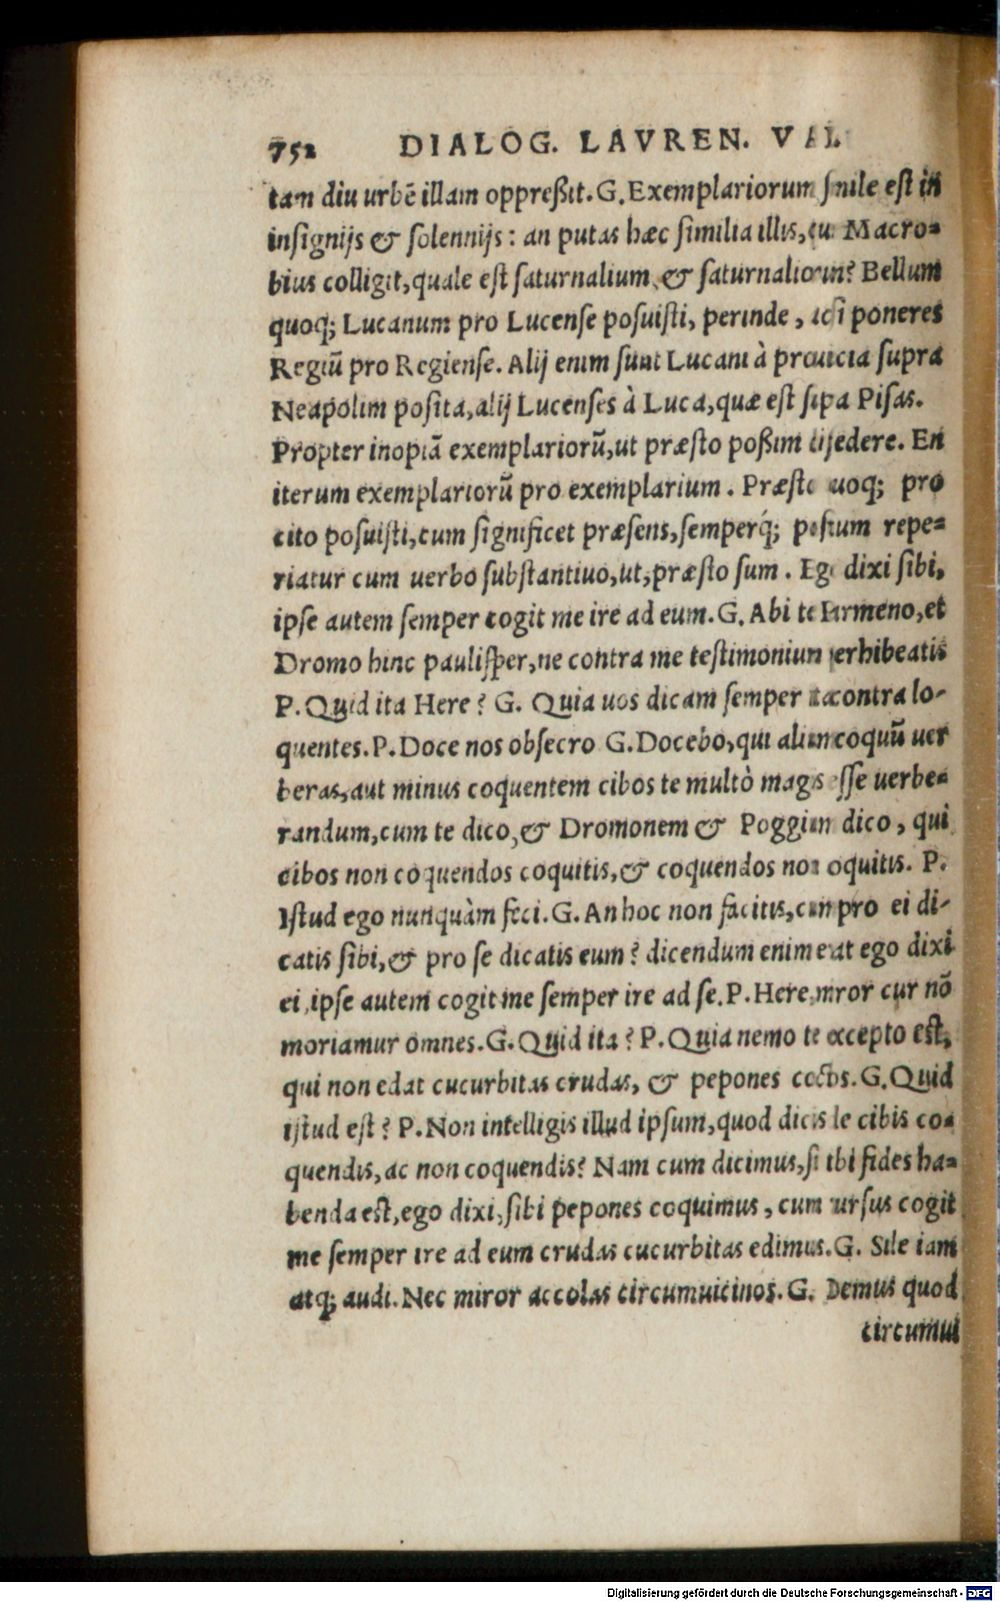 752 DIALOG. LAVREN. VAL.
tam diu urbē illam oppreßit. G. Exemplariorum simile est in
insignijs & solennijs: an putas hæc similia illis, Macro=
bius colligit, quale est saturnalium, & saturnaliorum? Bellum
quoq; Lucanum pro Lucense posuisti, perinde, acsi poneres
Regiū pro Regiense. Alij enim sunt Lucani à supra
Neapolim posita, alij Lucenses à Luca, quæ est Pisas.
Propter inopiā exemplariorū, ut præsto poßim En
iterum exemplariorū pro exemplarium. Præsto quoq; pro
cito posuisti, cum significet præsens, semperq́; repe=
riatur cum uerbo substantiuo, ut, præsto sum. Ego dixi sibi,
ipse autem semper cogit me ire ad eum. G. Abi te Parmeno, et
Dromo hinc paulisper, ne contra me testimonium perhibeatis
P. Quid ita Here? G. Quia uos dicam semper contra lo-
quentes. P. Doce nos obsecro G. Docebo, qui coquū uer
beras, aut minus coquentem cibos te multò magis esse uerbe=
randum, cum te dico, & Dromonem & Poggium dico, qui
cibos non coquendos coquitis, & coquendos non coquitis. P.
Istud ego nunquàm feci. G. An hoc non facitis, cum pro ei di-
catis sibi, & pro se dicatis eum? dicendum enim erat ego dixi
ei, ipse autem cogit me semper ire ad se. P. Here, miror cur nō
moriamur omnes. G. Quid ita? P. Quia nemo te excepto est,
qui non edat cucurbitas crudas, & pepones coctos. G. Quid
istud est? P. Non intelligis illud ipsum, quod dicis de cibis co=
quendis, ac non coquendis? Nam cum dicimus, si tibi fides ha=
benda est, ego dixi, sibi pepones coquimus, cum rursus cogit
me semper ire ad eum crudas cucurbitas edimus. G. Sile iam
atq; audi. Nec miror accolas circumuicinos. G. Demus quod
circumui
Digitalisierung gefördert durch die Deutsche Forschungsgemeinschaft - DFG